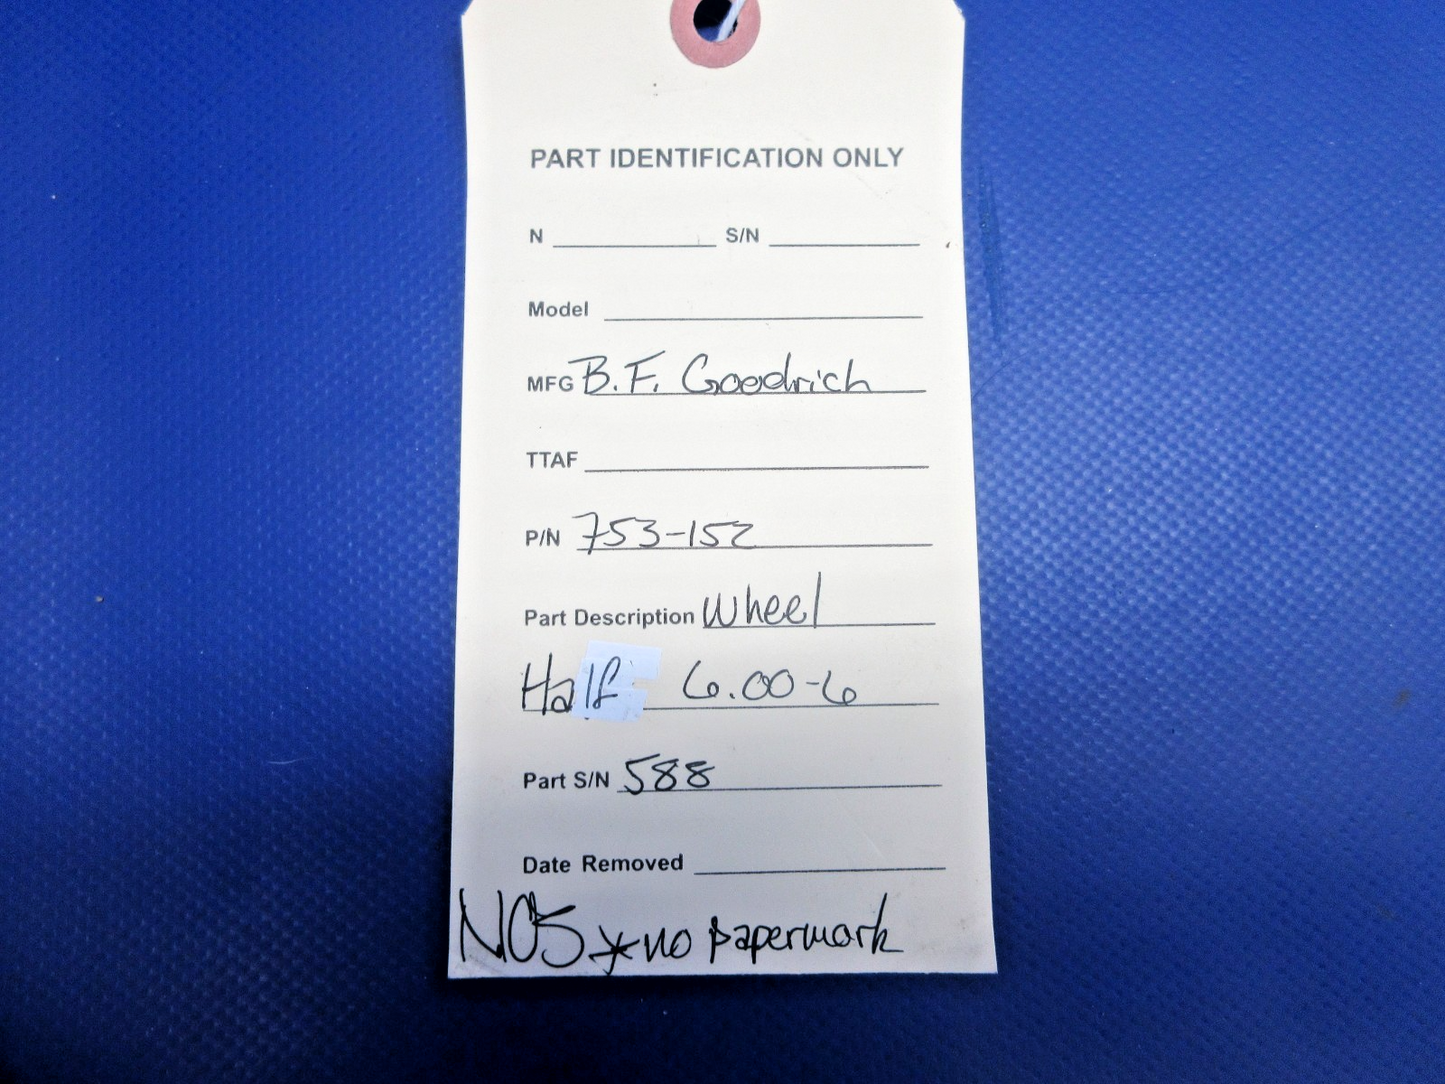 PART IDENTIFICATION ONLY
N S/N
Model
MFG B.F. Goodrich
TTAF
P/N 753-152
Part Description Wheel
Half 6.00-6
Part S/N 588
Date Removed
NOS *no papermork